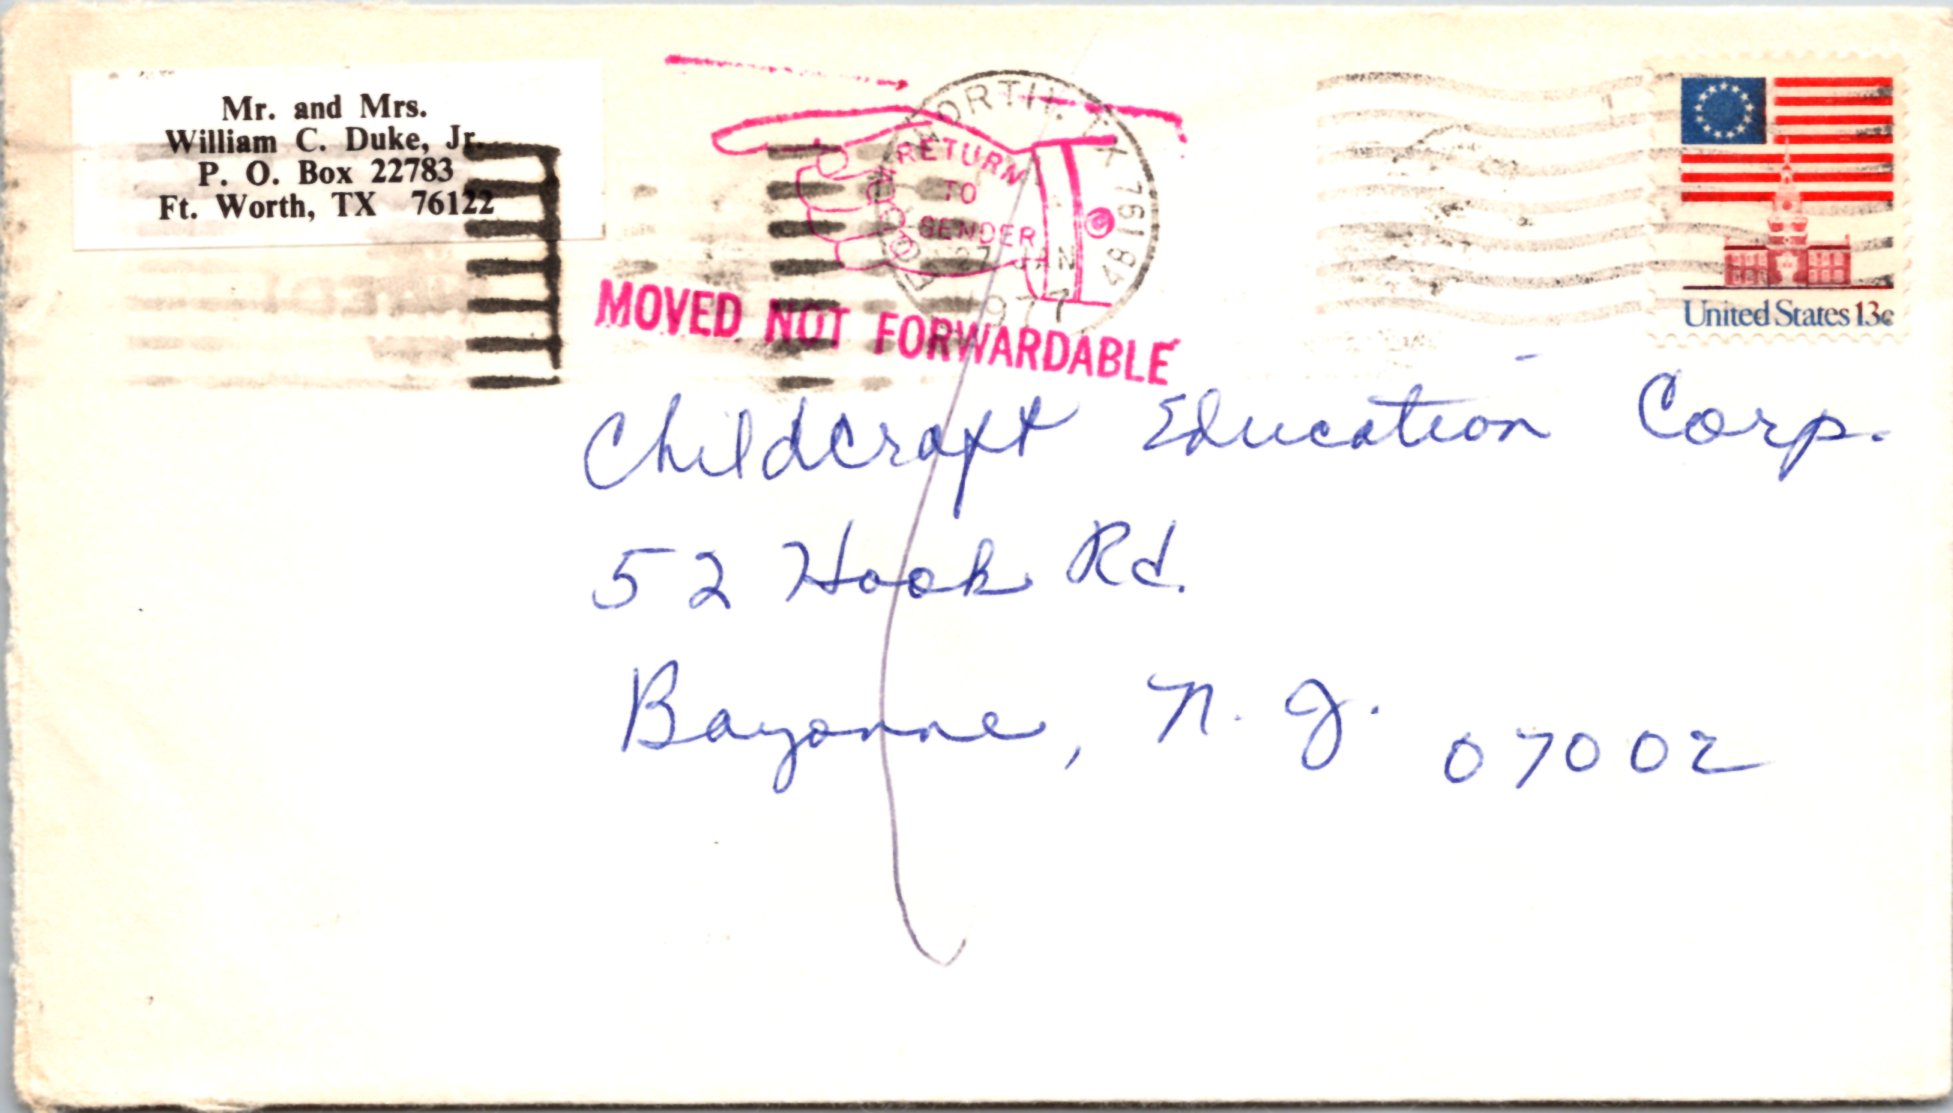 Mr. and Mrs.
William C. Duke, Jr.
P. O. Box 22783
Ft. Worth, TX 76122
WORTH, TX 761
27 JAN
1977
RETURN
TO
SENDER
MOVED NOT FORWARDABLE
United States 13c
Childcraft Education Corp.
52 Hook Rd.
Bayonne, N. J. 07002